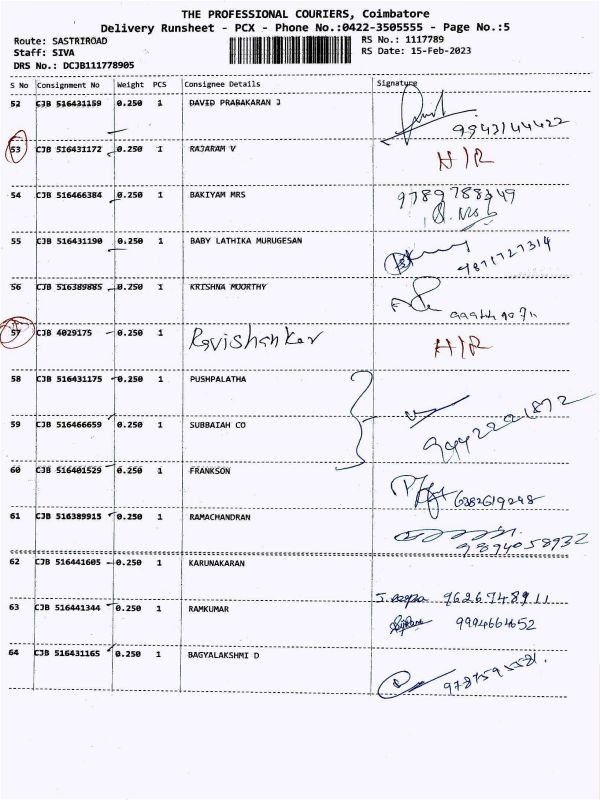 THE PROFESSIONAL COURIERS, Coimbatore
Delivery Runsheet - PCX - Phone No.:0422-3505555 - Page No.:5
Route: SASTRIROAD
Staff: SIVA
DRS No.: DCJB111778905
RS No.: 1117789
RS Date: 15-Feb-2023
S No Consignment No Weight PCS Consignee Details Signature
52 CJB 516431159 0.250 1 DAVID PRABAKARAN J
9943144422
53 CJB 516431172 0.250 1 RAJARAM V H/R
54 CJB 516466384 0.250 1 BAKIYAM MRS 9789788349
55 CJB 516431190 0.250 1 BABY LATHIKA MURUGESAN
56 CJB 516389885 0.250 1 KRISHNA MOORTHY
57 CJB 4029175 0.250 1 Ravishanker H/R
58 CJB 516431175 0.250 1 PUSHPALATHA
59 CJB 516466659 0.250 1 SUBBAIAH CO
9442221872
60 CJB 516401529 0.250 1 FRANKSON
6382619248
61 CJB 516389915 0.250 1 RAMACHANDRAN
9894058932
62 CJB 516441605 0.250 1 KARUNAKARAN
9626748911
63 CJB 516441344 0.250 1 RAMKUMAR
9994664652
64 CJB 516431165 0.250 1 BAGYALAKSHMI D
9787595581.